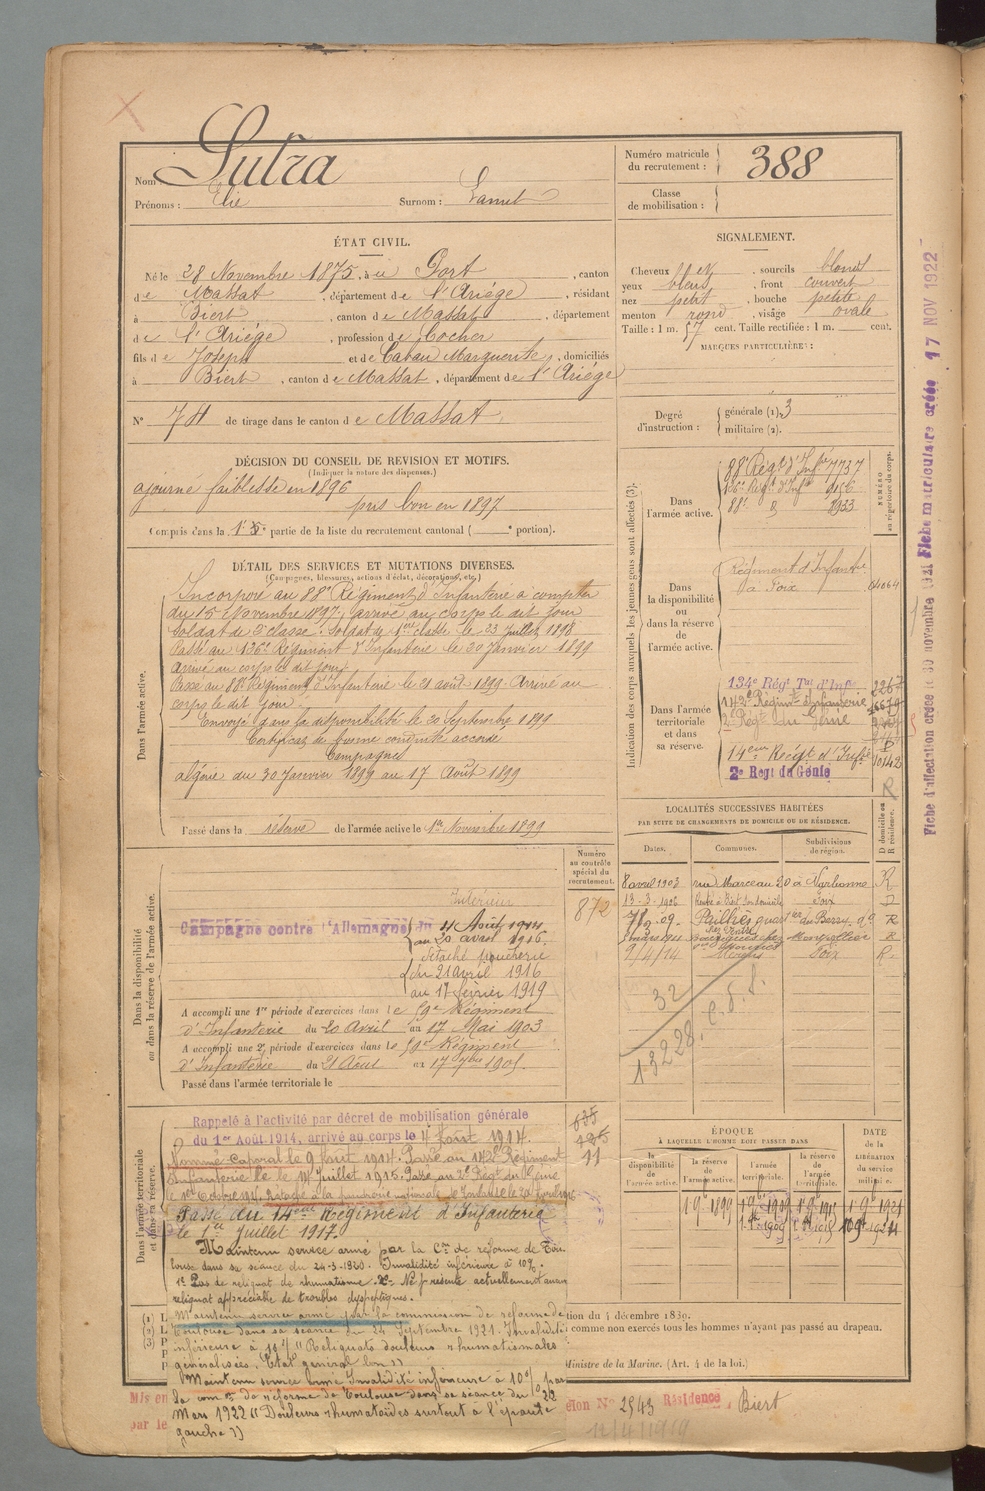 Nom : Sutra
Prénoms : Elie Surnom :
Numéro matricule du recrutement : 388
Classe de mobilisation :
ÉTAT CIVIL.
Né le 28 Novembre 1875, à Port, canton
de Massat, département de l'Ariége, résidant
à Biert, canton de Massat, département
de l'Ariége, profession de Cocher
fils de Joseph et de Cabau Marguerite, domiciliés
à Biert, canton de Massat, département de l'Ariége
N° de tirage dans le canton de Massat
SIGNALEMENT.
Cheveux blonds, sourcils blonds
yeux bleus, front couvert
nez petit, bouche petite
menton rond, visage ovale
Taille : 1 m. 57 cent. Taille rectifiée : 1 m. cent.
MARQUES PARTICULIÈRES :
Degré d'instruction : générale (1). 3
militaire (2).
DÉCISION DU CONSEIL DE REVISION ET MOTIFS.
(Indiquer la nature des dispenses.)
ajourné faiblesse en 1896
pris bon en 1897
Compris dans la partie de la liste du recrutement cantonal ( portion).
DÉTAIL DES SERVICES ET MUTATIONS DIVERSES.
(Campagnes, blessures, actions d'éclat, décorations, etc.)
Dans l'armée active.
Incorporé au 88e Régiment d'Infanterie à compter
du 15 Novembre 1897, arrivé au corps le dit jour
Soldat de 2e classe. Soldat de 1re classe le 23 Juillet 1898
Passé au 136e Régiment d'Infanterie le 30 Janvier 1899
Arrivé au corps le dit jour.
Passé au 88e Régiment d'Infanterie le 21 août 1899. Arrivé au
corps le dit jour.
Envoyé dans la disponibilité le 20 Septembre 1899
Certificat de bonne conduite accordé
Campagnes
Algérie du 30 Janvier 1899 au 17 Août 1899
Passé dans la réserve de l'armée active le 1er Novembre 1899
Indication des corps auxquels les jeunes gens sont affectés (3).
NUMÉRO au répertoire du corps.
Dans l'armée active.
88e Régt d'Infie 7737
136e Régt d'Infie
88e
Dans la disponibilité ou dans la réserve de l'armée active.
Régiment d'Infanterie
à Foix 04064
Dans l'armée territoriale et dans sa réserve.
134e Régt Tal d'Infie
142e Régimt d'Infanterie
2e Régt du Génie
14eme Régt d'Infie
2e Regt du Génie
Fiche d'affectation créée le 30 novembre
Fiche matriculaire créée 17 NOV 1922
Dans la disponibilité ou dans la réserve de l'armée active.
Numéro au contrôle spécial du recrutement.
872
Intérieur
Campagne contre l'Allemagne du 4 Août 1914
au 20 avril 1916.
Détaché poucherie
du 21 avril 1916
au 17 février 1919
A accompli une 1re période d'exercices dans le 59e Régiment
d'Infanterie du 20 Avril au 17 Mai 1903
A accompli une 2e période d'exercices dans le 59e Régiment
d'Infanterie du 21 Août au 17 7bre 1905.
Passé dans l'armée territoriale le
LOCALITÉS SUCCESSIVES HABITÉES
PAR SUITE DE CHANGEMENTS DE DOMICILE OU DE RÉSIDENCE.
Dates. Communes. Subdivisions de région. D domicile ou R résidence.
8 avril 1903 rue Marceau 20 à Narbonne R
13-3-1906 Foix D
R
Montpellier R
9/4/14 Foix R
32
13228
Dans l'armée territoriale et dans sa réserve.
Rappelé à l'activité par décret de mobilisation générale
du 1er Août 1914, arrivé au corps le 4 août 1914.
Nommé Caporal le 9 août 1914. Passé au 142e Régiment
d'Infanterie le Juillet 1915. Passé au 2e Régt du Génie
Passé du 14eme Régiment d'Infanterie
le 1er Juillet 1917.
Maintenu service armé par la Con de réforme de Tou-
louse dans sa séance du 24-3-1920. Invalidité inférieure à 10%.
1° Pas de reliquat de rhumatisme. 2° Ne présente actuellement aucun
reliquat appréciable de troubles dyspeptiques.
Maintenu service armé par la commission de réforme de
Toulouse dans sa séance du 24 Septembre 1921. Invalidité
inférieure à 10% "Reliquats douleurs rhumatismales
généralisées. Etat général bon"
Maintenu service armé Invalidité inférieure à 10% par
la com on de réforme de Toulouse dans sa séance du 22
Mars 1922 "Douleurs rhumatoïdes surtout à l'épaule
gauche"
ÉPOQUE
À LAQUELLE L'HOMME DOIT PASSER DANS
la disponibilité de l'armée active. la réserve de l'armée active. l'armée territoriale. la réserve de l'armée territoriale.
DATE de la LIBÉRATION du service militaire.
tion du 4 décembre 1889.
comme non exercés tous les hommes n'ayant pas passé au drapeau.
Ministre de la Marine. (Art. 4 de la loi.)
Mis en
par le
N° 2943 Résidence Biert